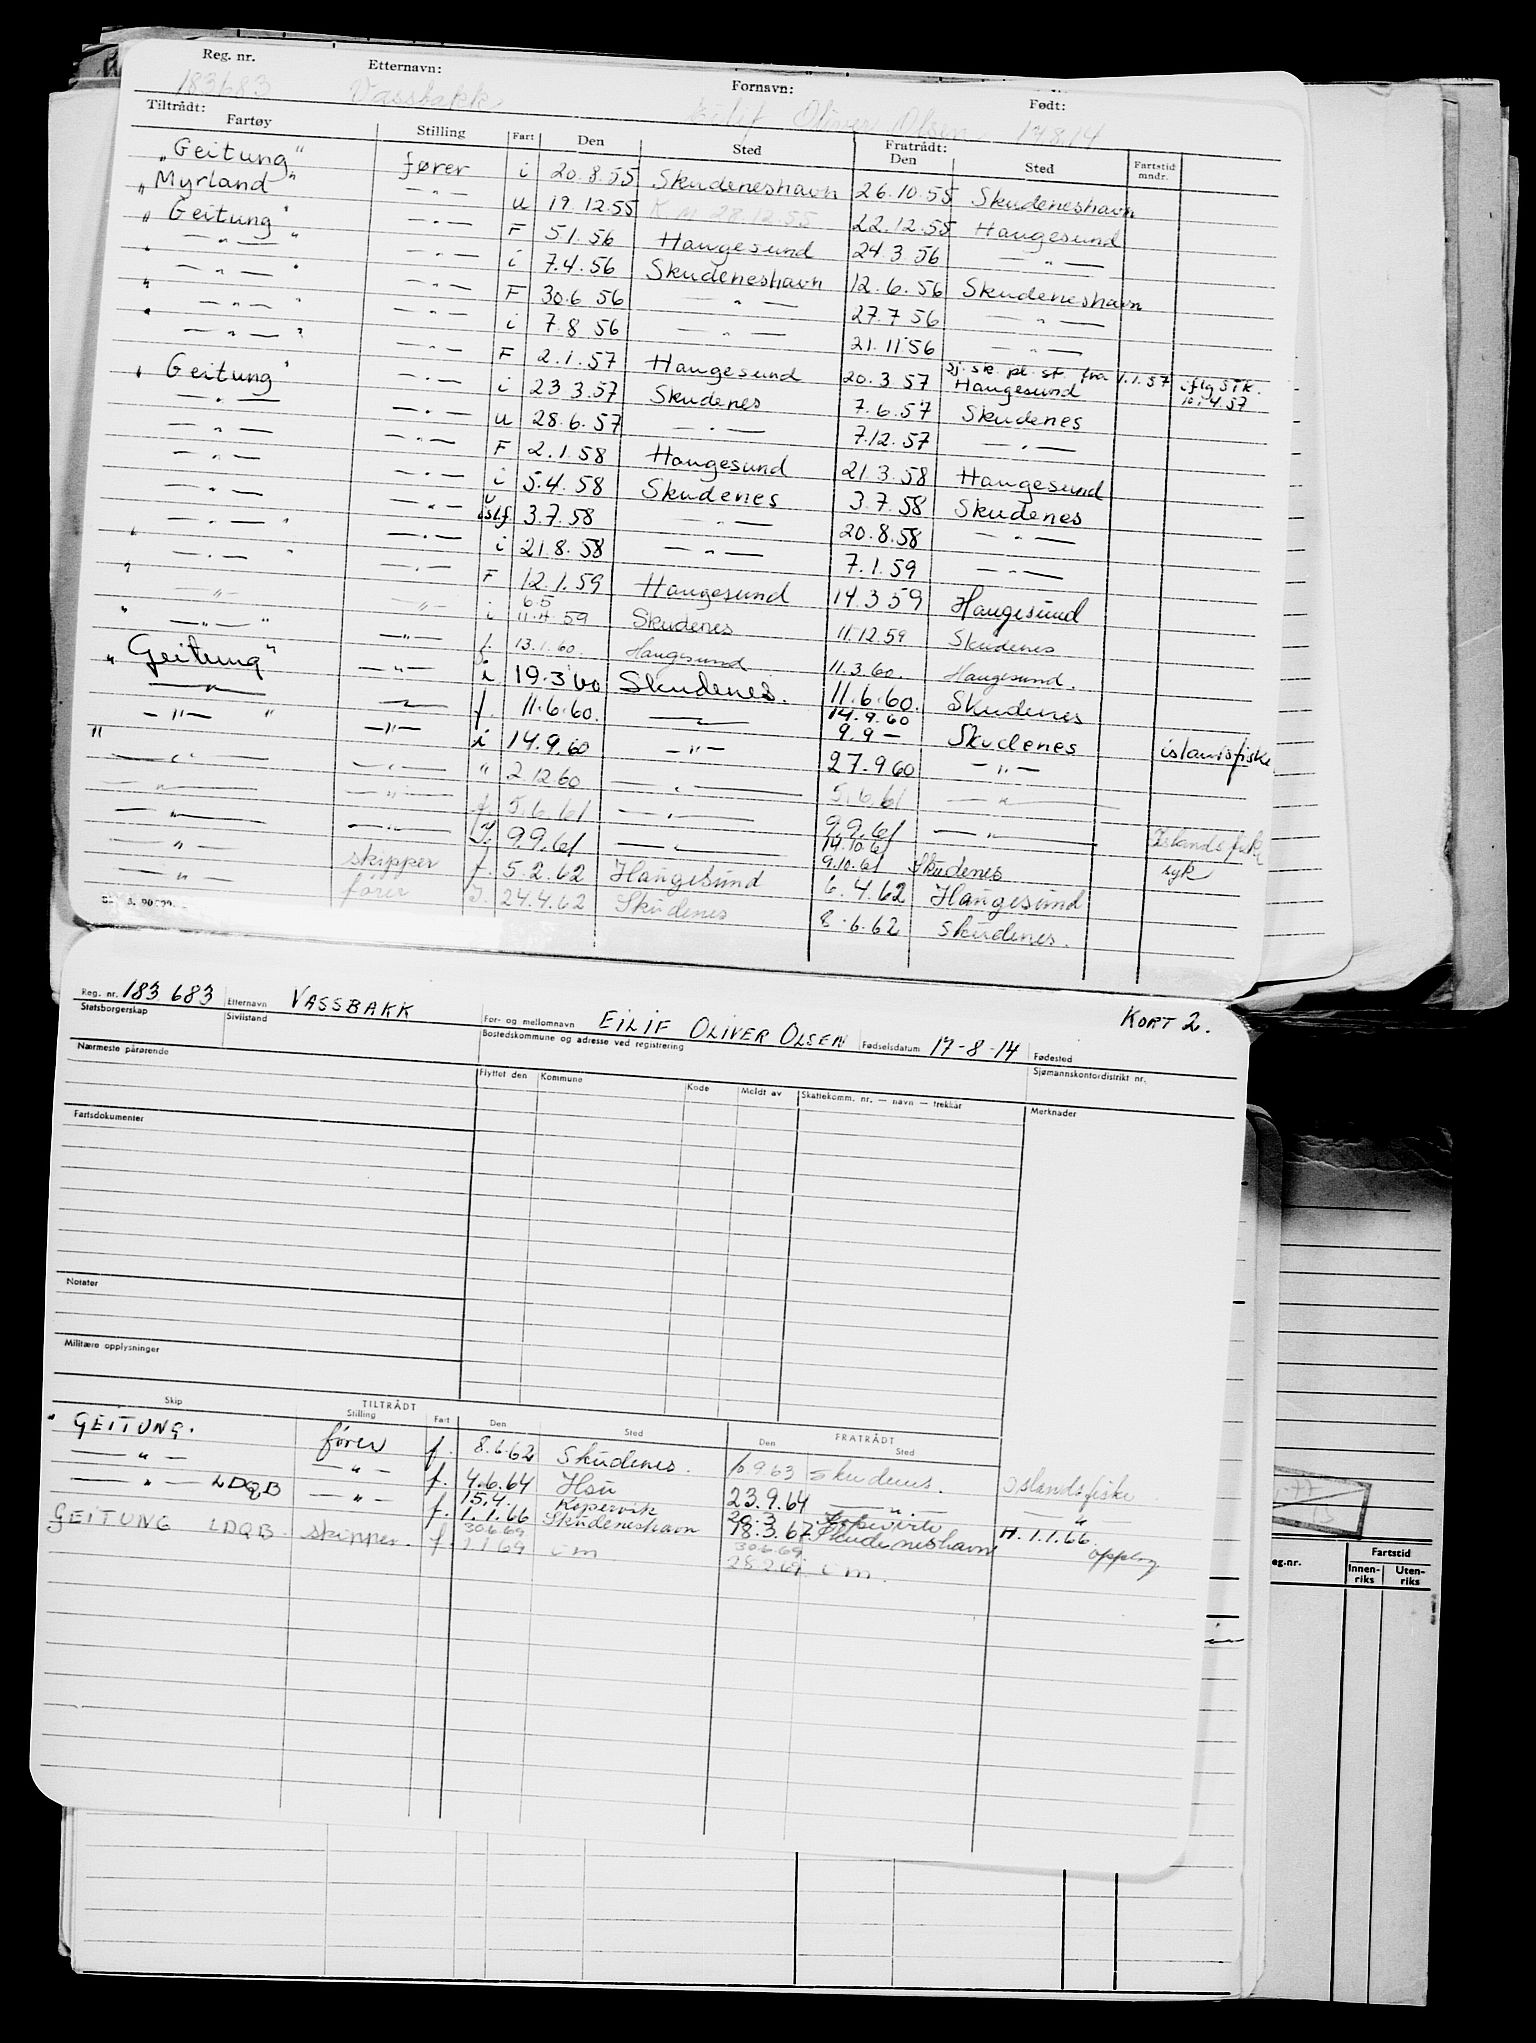 Reg. nr. Etternavn: Fornavn: Født:
183683 Vassbakk Eilif Oliver Olsen 17 8 14
Tiltrådt: Fratrådt:
Fartøy Stilling Fart Den Sted Den Sted Fartstid mndr.
"Geitung" fører i 20.8.55 Skudeneshavn 26.10.55 Skudeneshavn
"Myrland" —"— u 19.12.55 K M 28.12.55 22.12.55 Haugesund
"Geitung" —"— F 5.1.56 Haugesund 24.3.56 —"—
" —"— " —"— i 7.4.56 Skudeneshavn 12.6.56 Skudeneshavn
—"— " —"— F 30.6 56 —"— 27.7 56 —"—
" —"— —"— i 7.8 56 —"— 21.11 56 —"—
" —"— " —"— F 2.1.57 Haugesund 20.3 57 Haugesund sj. sk. pl. st. fra 1.1.57 iflg S.T.K. 10.4.57
"Geitung" —"— i 23 3.57 Skudenes 7.6.57 Skudenes
—"— —"— u 28.6.57 —"— 7.12.57 —"—
—"— —"— F 2.1.58 Haugesund 21 3.58 Haugesund
—"— —"— i 5.4.58 Skudenes 3.7.58 Skudenes
—"— —"— u islf 3.7.58 —"— 20.8.58 —"—
—"— " —"— i 21.8.58 —"— 7.1.59 —"—
" —"— " —"— F 12.1.59 Haugesund 14.3 59 Haugesund
" —"— —"— i 6.5 11.4.59 Skudenes 11.12.59 Skudenes
" —"— " —"— f. 13.1.60. Haugesund 11.3.60. Haugesund.
"Geitung" —"— i 19.3 60 Skudenes. 11.6.60. Skudenes
—"— —"— f. 11.6.60. —"— 14.9.60 9.9 — Skudenes islandsfiske
—"— " —"— i 14.9.60 —"— 27.9 60 —"—
" —"— —"— " 2 12 60 —"— 5.6.61 —"—
—"— —"— f. 5.6.61 —"— 9.9.61 —"— Islandsfiske
—"— —"— I. 9.9.61 —"— 14.10.61 9.10.61 Skudenes syk
—"— skipper f. 5.2.62 Haugesund 6.4.62 Haugesund
—"— fører I. 24.4.62 Skudenes 8.6.62 Skudenes.
Reg. nr. 183 683 Etternavn VASSBAKK For- og mellomnavn EILIF OLIVER OLSEN Fødselsdatum 17-8-14 Fødested KORT 2.
Statsborgerskap Sivilstand Bostedskommune og adresse ved registrering Sjømannskontordistrikt nr.
Nærmeste pårørende Flyttet den Kommune Kode Meldt av Skattekomm. nr. — navn — trekkår Merknader
Fartsdokumenter
Notater
Militære opplysninger
TILTRÅDT FRATRÅDT
Skip Stilling Fart Den Sted Den Sted
" GEITUNG. fører f. 8.6.62 Skudenes. 16.9.63 Skudenes. Islandsfiske
—"— —"— f. 4.6.64 Hsu 23.9.64 —"— —"—
—"— LDQB —"— f. 15.4. 1.1.66 Kopervik Skudeneshavn 20.3 18.3.67 Kopervik Skudeneshavn H. 1.1.66.
GEITUNG LDQB. skipper. f. 30.6.69 2.1 69 i m 30.6.69 28.2.69 i m. opplag
eg.nr. Fartstid
Innen-riks Uten-riks